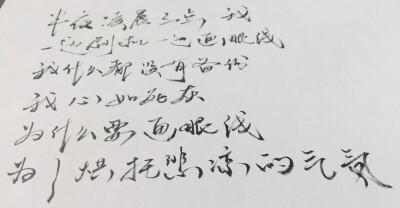 半夜凌晨三点，我
一边刷机一边画眼线
我什么都没有备份
我心如死灰
为什么要画眼线
为了烘托悲凉的气氛